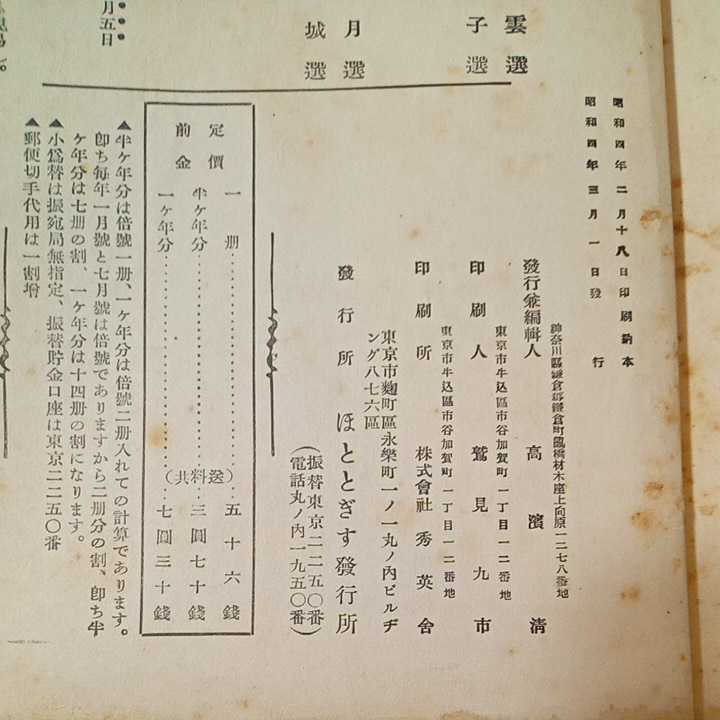 昭和四年二月十八日印刷納本
昭和四年三月一日發行
神奈川縣鎌倉郡鎌倉町
材木座上向原一二七八番地
發行兼編輯人 高濱淸
東京市牛込區市谷加賀町一丁目一二番地
印刷人 鷲見九市
東京市牛込區市谷加賀町一丁目一二番地
印刷所 株式會社秀英舍
東京市麴町區永樂町一ノ一丸ノ內ビルヂ
ング八七六區
發行所 ほととぎす發行所
(振替東京二二五〇番)
(電話丸ノ內一九五〇番)
雲選
子選
月選
城選
月五日
定價 一册 五十六錢
前金 半ケ年分 (送料共) 三圓七十錢
一ケ年分 七圓三十錢
▲半ケ年分は倍號一册、一ケ年分は倍號二册入れての計算であります。
卽ち每年一月號と七月號は倍號でありますから二册分の割、卽ち半
ケ年分は七册の割、一ケ年分は十四册の割になります。
▲小爲替は振宛局無指定、振替貯金口座は東京二二五〇番
▲郵便切手代用は一割增